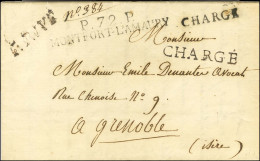 N° 384
P. 72. P.
MONTFORT-L'AMAURY
CHARGÉ
Monsieur
CHARGÉ
Monsieur Emile Denantes Avocat
Rue Chenoise N° 9.
a grenoble
(isère)